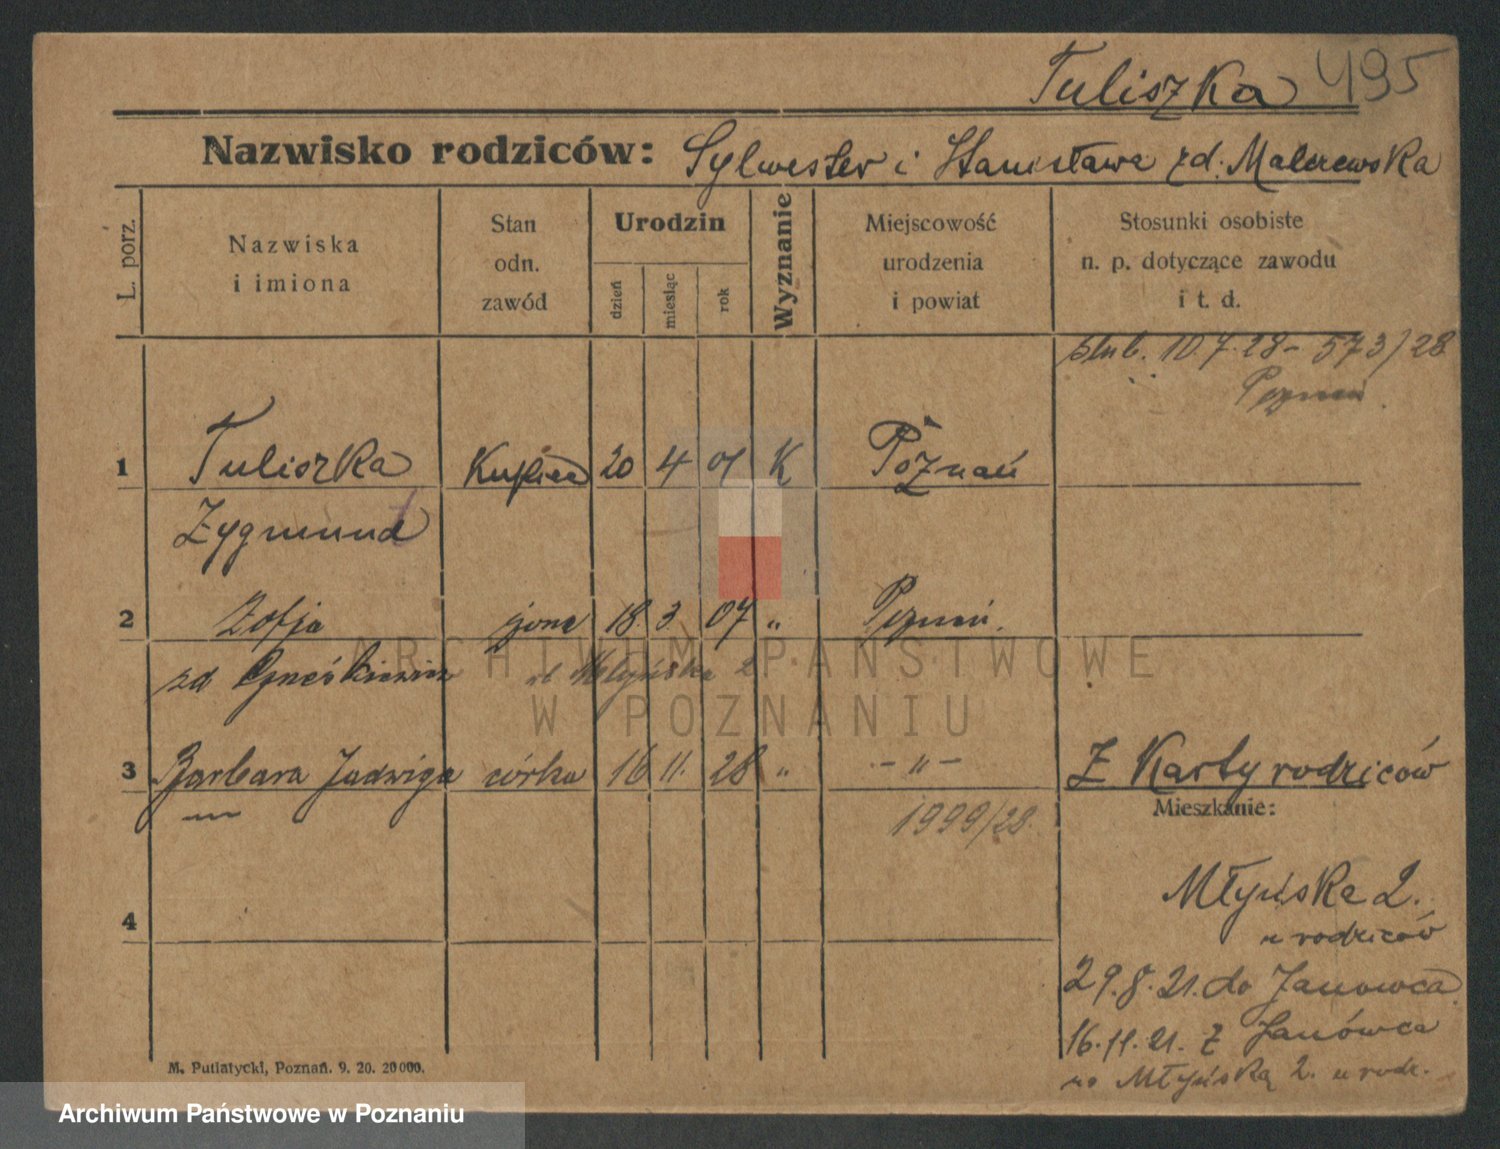 Tuliszka 495
Nazwisko rodziców: Sylwester i Stanisława zd. Malczewska
L. porz.
Nazwiska
i imiona
Stan
odn.
zawód
Urodzin
dzień
miesiąc
rok
Wyznanie
Miejscowość
urodzenia
i powiat
Stosunki osobiste
n. p. dotyczące zawodu
i t. d.
ślub. 10.7.28 - 573/28
Poznań
1 Tuliszka Kupiec 20 4 01 K Poznań
Zygmund
2 Zofja żona 18 3 07 " Poznań.
zd
Młyńska 2
3 Barbara Jadwiga córka 16 11. 28 " - " - Z Karty rodziców
1999/28.
Mieszkanie:
Młyńska 2.
u rodziców
4
29.8.21. do Janowca.
16.11.21. Z Janówca
na Młyńską 2. u rodz.
M. Putiatycki, Poznań. 9. 20. 20 000.
ARCHIWUM PAŃSTWOWE
W POZNANIU
Archiwum Państwowe w Poznaniu